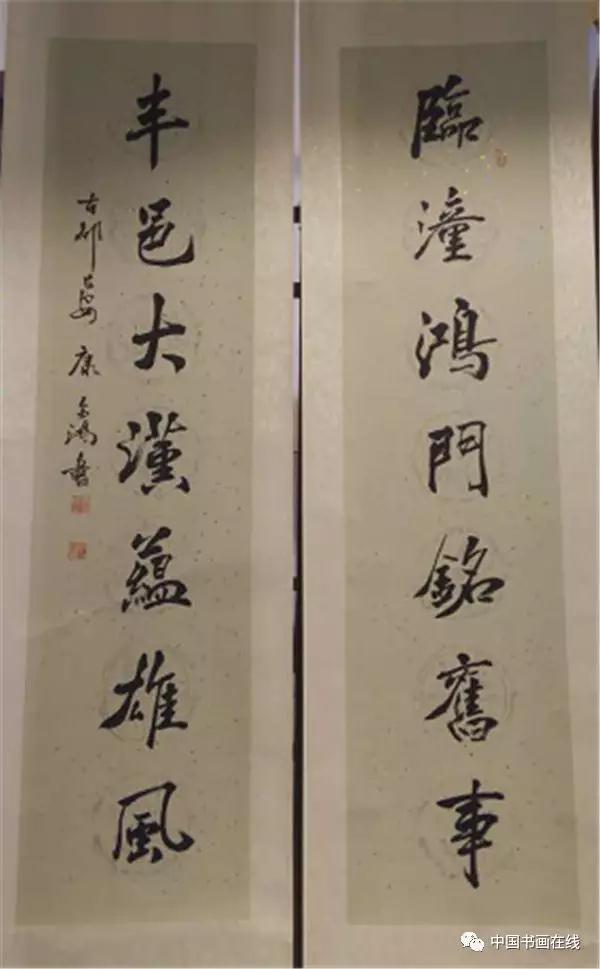 臨潼鴻門銘舊事
丰邑大漢蘊雄風
古都 康 鴻書
中国书画在线